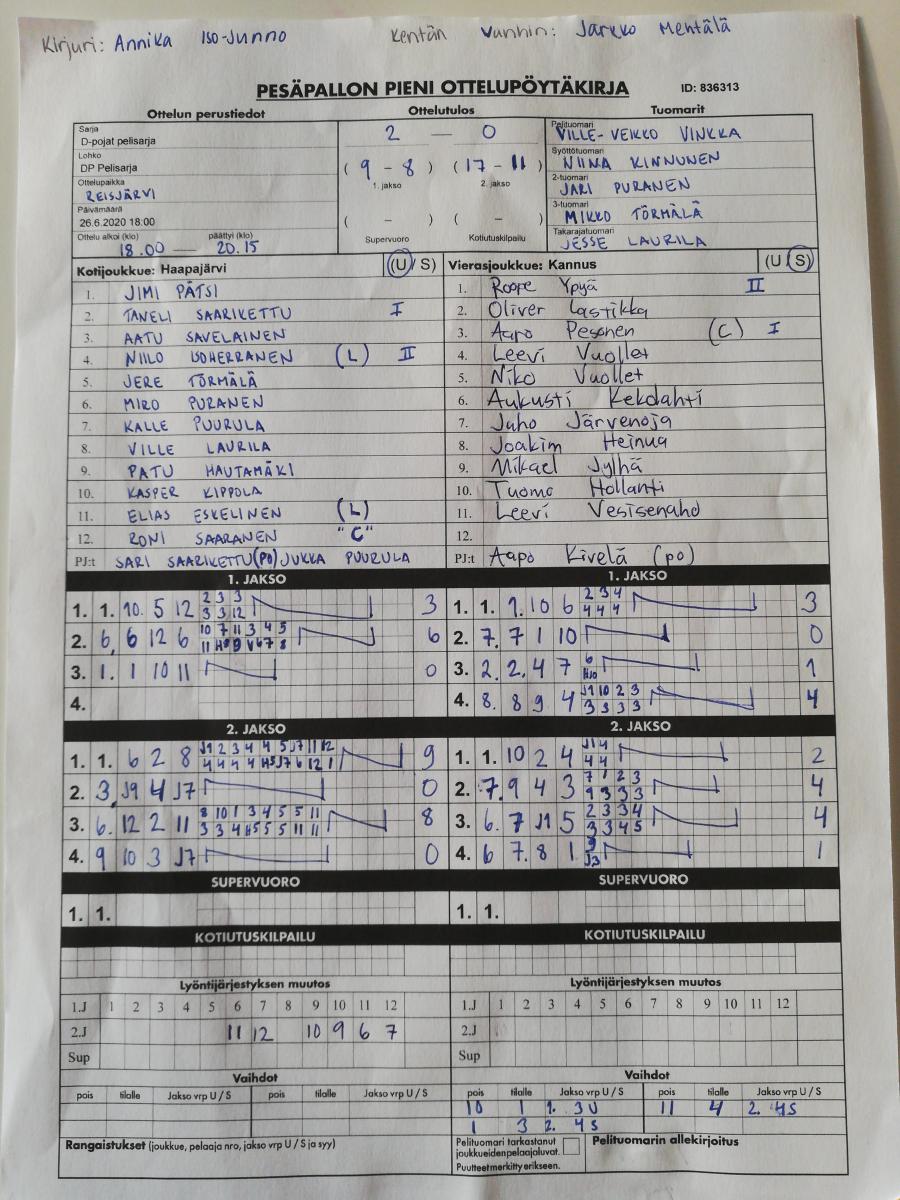 Kirjuri: Annika Iso-Junno Kentän vanhin: Jarkko Mehtälä
PESÄPALLON PIENI OTTELUPÖYTÄKIRJA ID: 836313
Ottelun perustiedot Ottelutulos Tuomarit
Sarja
D-pojat pelisarja
Lohko
DP Pelisarja
Ottelupaikka
REISJÄRVI
Päivämäärä
26.6.2020 18:00
Ottelu alkoi (klo) päättyi (klo)
18.00 — 20.15
2 — 0
(9 - 8) (17 - 11)
1. jakso 2. jakso
( - ) ( - )
Supervuoro Kotiutuskilpailu
Pelituomari
VILLE-VEIKKO VINKKA
Syöttötuomari
NIINA KINNUNEN
2-tuomari
JARI PURANEN
3-tuomari
MIKKO TÖRMÄLÄ
Takarajatuomari
JESSE LAURILA
Kotijoukkue: Haapajärvi (U/S)
1. JIMI PÄTSI
2. TANELI SAARIKETTU I
3. AATU SAVELAINEN
4. NIILO (L) II
5. JERE TÖRMÄLÄ
6. MIRO PURANEN
7. KALLE PUURULA
8. VILLE LAURILA
9. PATU HAUTAMÄKI
10. KASPER KIPPOLA
11. ELIAS ESKELINEN (L)
12. RONI SAARANEN "C"
PJ:t SARI SAARIKETTU (PO) JUKKA PUURULA
Vierasjoukkue: Kannus (U/S)
1. Roope Ypyä II
2. Oliver Lastikka
3. Aapo Pesonen (C) I
4. Leevi Vuollet
5. Niko Vuollet
6. Aukusti Kekolahti
7. Juho Järvenoja
8. Joakim Heinua
9. Mikael Jylhä
10. Tuomo Hollanti
11. Leevi Vesisenaho
12.
PJ:t Aapo Kivelä (po)
1. JAKSO
1. 1. 10. 5 12 2 3 3 3
3 3 12
2. 6, 6 12 6 10 7 11 3 4 5 6
3. 1. 1 10 11 0
4.
1. JAKSO
1. 1. 9. 10 6 2 3 4 3
4 4 4
2. 7. 7 1 10 0
3. 2. 2. 4 7 6 1
4. 8. 8 9 4 J1 10 2 3 4
3 3 3 3
2. JAKSO
1. 1. 6 2 8 J1 2 3 4 4 5 J7 11 12 9
4 4 4 4 H5 J7 6 12 1
2. 3, J9 4 J7 0
3. 6. 12 2 11 8 10 1 3 4 5 5 11 8
3 3 4 H5 5 5 11 11
4. 9 10 3 J7 0
2. JAKSO
1. 1. 10 2 4 J1 4 2
4 4
2. 7. 9 4 3 7 1 2 3 4
9 3 3 3
3. 6. 7 J1 5 2 3 3 4 4
3 3 4 5
4. 6 7. 8 1. 9 1
J3
SUPERVUORO
1. 1.
SUPERVUORO
1. 1.
KOTIUTUSKILPAILU
KOTIUTUSKILPAILU
Lyöntijärjestyksen muutos
1.J 1 2 3 4 5 6 7 8 9 10 11 12
2.J 11 12 10 9 6 7
Sup
Lyöntijärjestyksen muutos
1.J 1 2 3 4 5 6 7 8 9 10 11 12
2.J
Sup
Vaihdot
pois tilalle Jakso vrp U / S pois tilalle Jakso vrp U / S
Vaihdot
pois tilalle Jakso vrp U / S pois tilalle Jakso vrp U / S
10 1 1. 3 U 11 4 2. 4S
1 3 2. 4 S
Rangaistukset (joukkue, pelaaja nro, jakso vrp U / S ja syy)
Pelituomari tarkastanut
joukkueidenpelaajaluvat.
Puutteetmerkitty erikseen.
Pelituomarin allekirjoitus